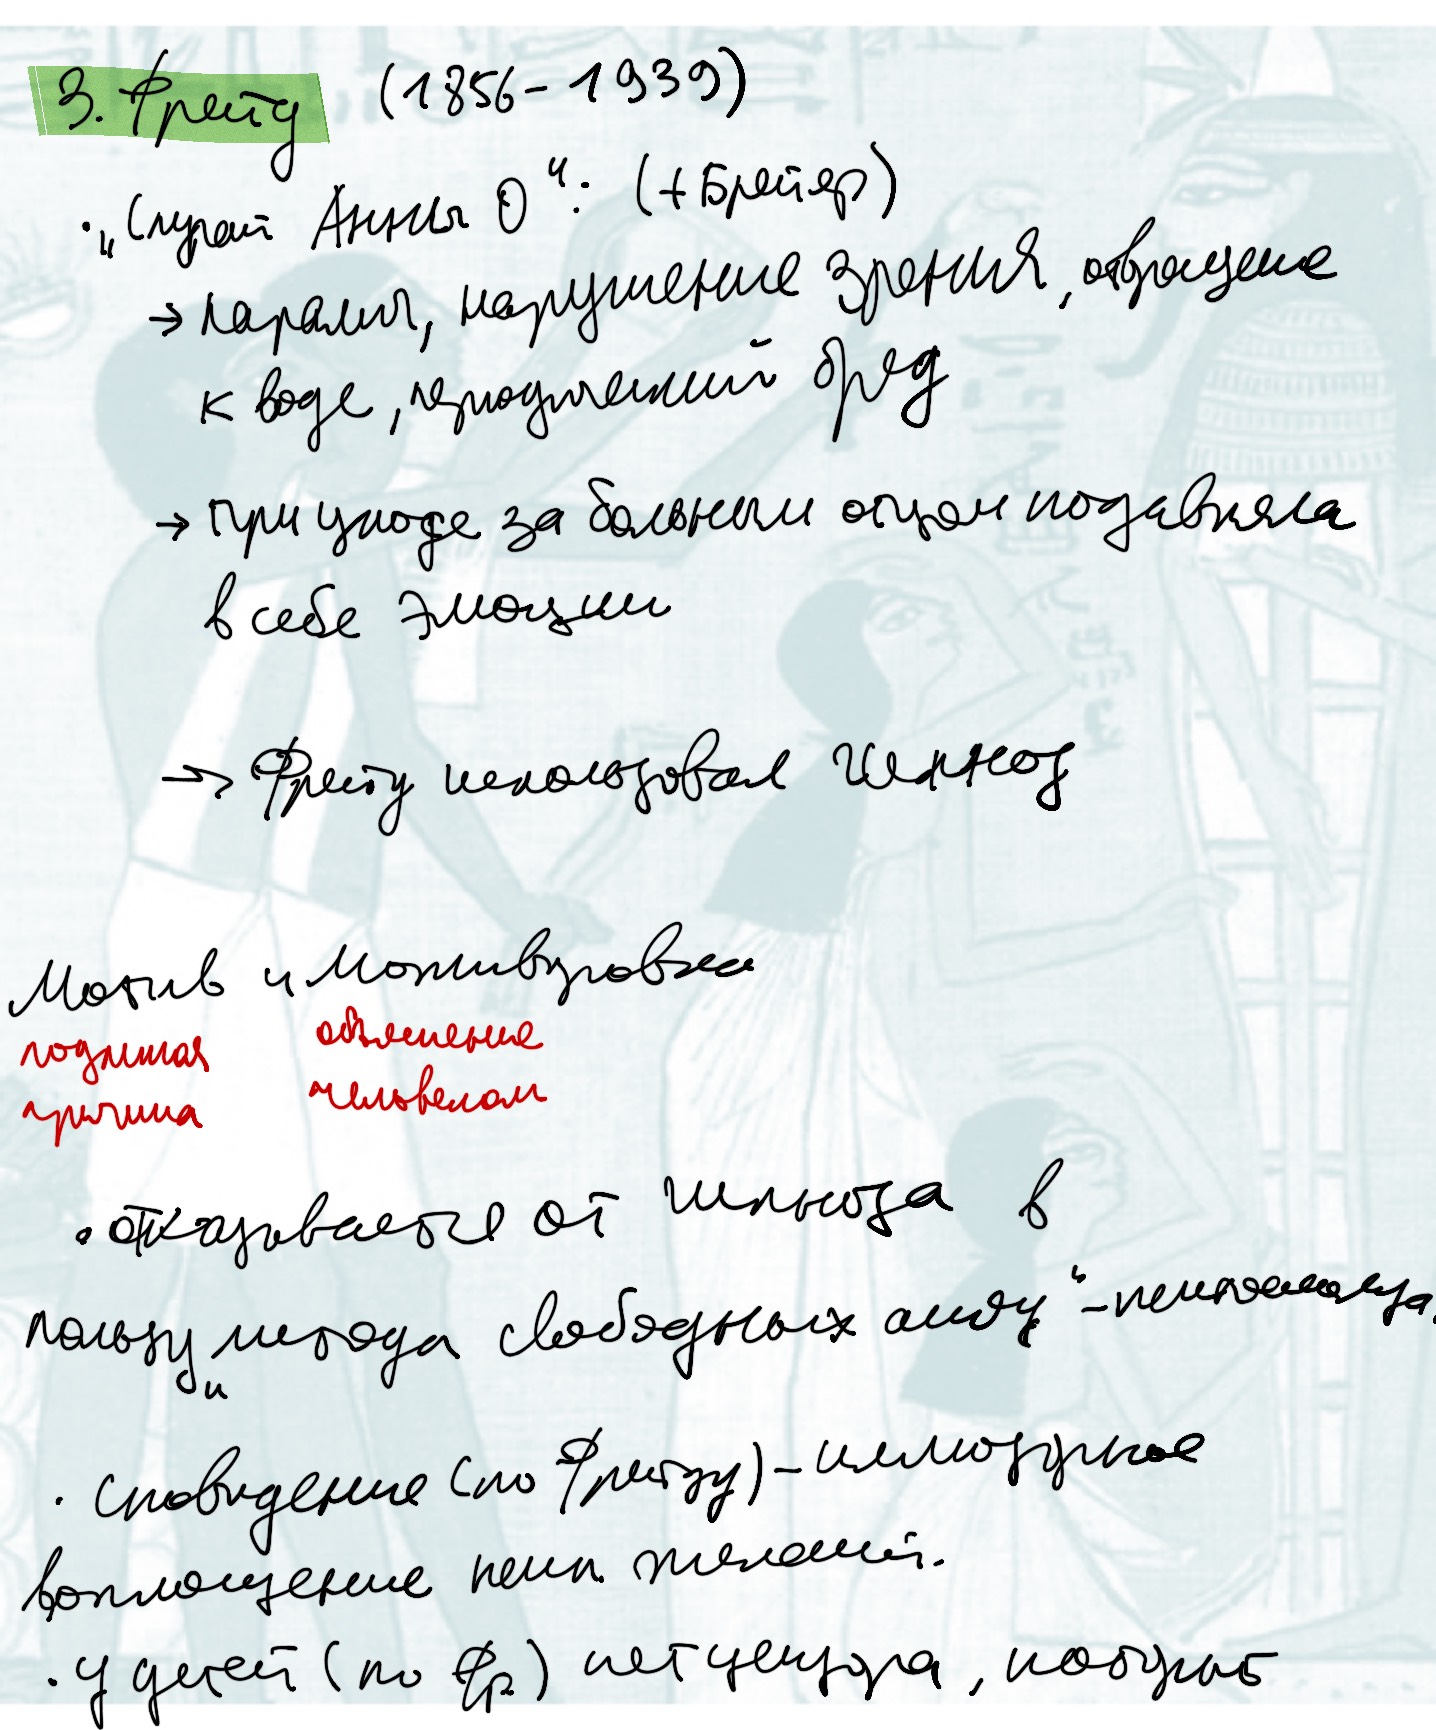 З. Фрейд (1856-1939)
• „Случай Анны О“: (+Брейер)
→ паралич, нарушение зрения, отвращение
к воде, периодический бред
→ при уходе за больным отцом подавляла
в себе эмоции
→ Фрейд использовал гипноз
Мотив и Мотивировка
подлинная объяснение
причина человеком
• отказывается от гипноза в
пользу „метода свободных ассоц“ - психоанализа.
• Сновидение (по Фрейду) - иллюзорное
воплощение желаний.
• У детей (по Фр) нет цензора,